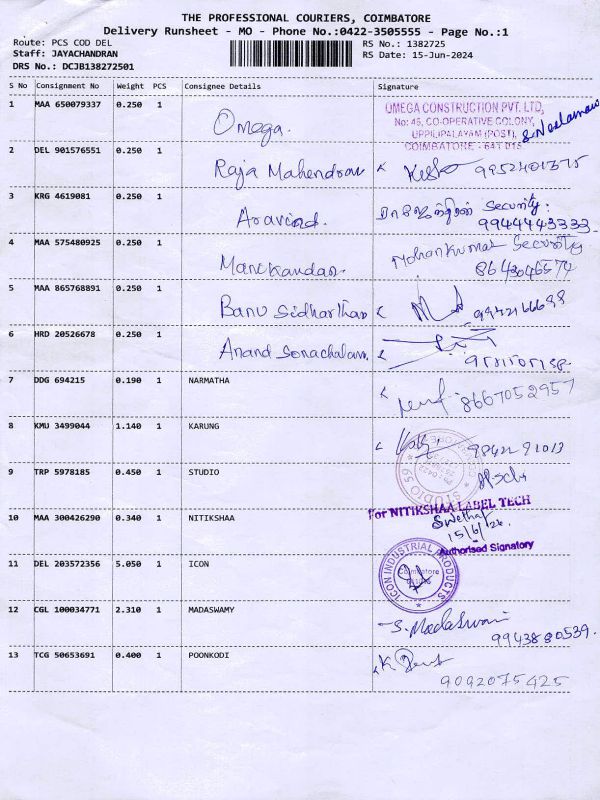 THE PROFESSIONAL COURIERS, COIMBATORE
Delivery Runsheet - MO - Phone No.:0422-3505555 - Page No.:1
Route: PCS COD DEL
RS No.: 1382725
Staff: JAYACHANDRAN
RS Date: 15-Jun-2024
DRS No.: DCJB138272501
S No Consignment No Weight PCS Consignee Details Signature
1 MAA 650079337 0.250 1 Omega.
OMEGA CONSTRUCTION PVT. LTD,
No: 46, CO-OPERATIVE COLONY,
UPPILIPALAYAM (POST),
COIMBATORE - 641 015
2 DEL 901576551 0.250 1 Raja Mahendran 9952401375
3 KRG 4619081 0.250 1 Aravind. Security:
9944443333.
4 MAA 575480925 0.250 1 Manikandan. Mohankumar Security
8643046574
5 MAA 865768891 0.250 1 Banu Sidharthan 9942166698
6 HRD 20526678 0.250 1 Anand Sonachalam.
7 DDG 694215 0.190 1 NARMATHA 8667052957
8 KMU 3499044 1.140 1 KARUNG 9842291013
9 TRP 5978185 0.450 1 STUDIO
STUDIO 59
10 MAA 300426290 0.340 1 NITIKSHAA
For NITIKSHAA LABEL TECH
Swetha
15/6/24.
Authorised Signatory
11 DEL 203572356 5.050 1 ICON
ICON INDUSTRIAL PRODUCTS
Coimbatore
12 CGL 100034771 2.310 1 MADASWAMY S. Madaswami
9943880539.
13 TCG 50653691 0.400 1 POONKODI
9092075425